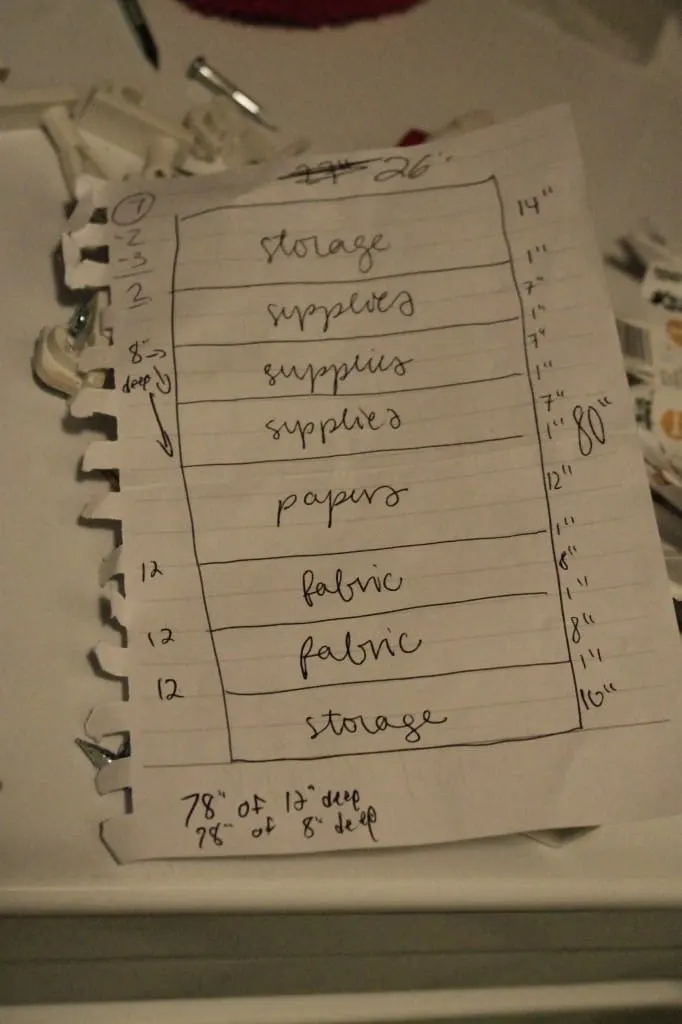 26"
7
-2
-3
2
14"
storage
1"
7"
supplies
1"
7"
8"
deep
supplies
1"
7"
supplies
1"
80"
12"
papers
1"
12
8"
fabric
1"
12
8"
fabric
1"
12
10"
storage
78" of 12" deep
78" of 8" deep